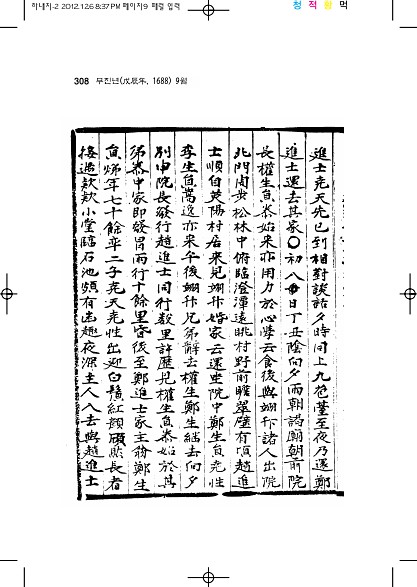 2012.12.6 8:37 PM 페이지9
청 적 황 먹
308 무진년(戊辰年, 1688) 9월
進士克天先已到相對談話夕時同上九苞臺至夜乃還鄭
進士還去其家○初八日丁丑陰向夕雨朝謁廟朝前院
長權生員恭始來亦用力於心學云食後與翊卞諸人出院
北門周步松林中俯臨澄潭遠眺村野前瞻翠壁有頃趙進
士順伯英陽村居來見翊卞婚家云還坐院中鄭生員克性
李生員嵩逸亦來午後翊卞兄弟辭去權生鄭生繼去向夕
別申院長發行趙進士同行數里許歷見權生員恭始於其
弟恭中家即發冒雨行十餘里昏後至鄭進士家主翁鄭生
員焍年七十餘率二子克天克性出迎白鬚紅顔儼然長者
接遇款款小堂臨石池頗有幽趣夜深主人入去與趙進士